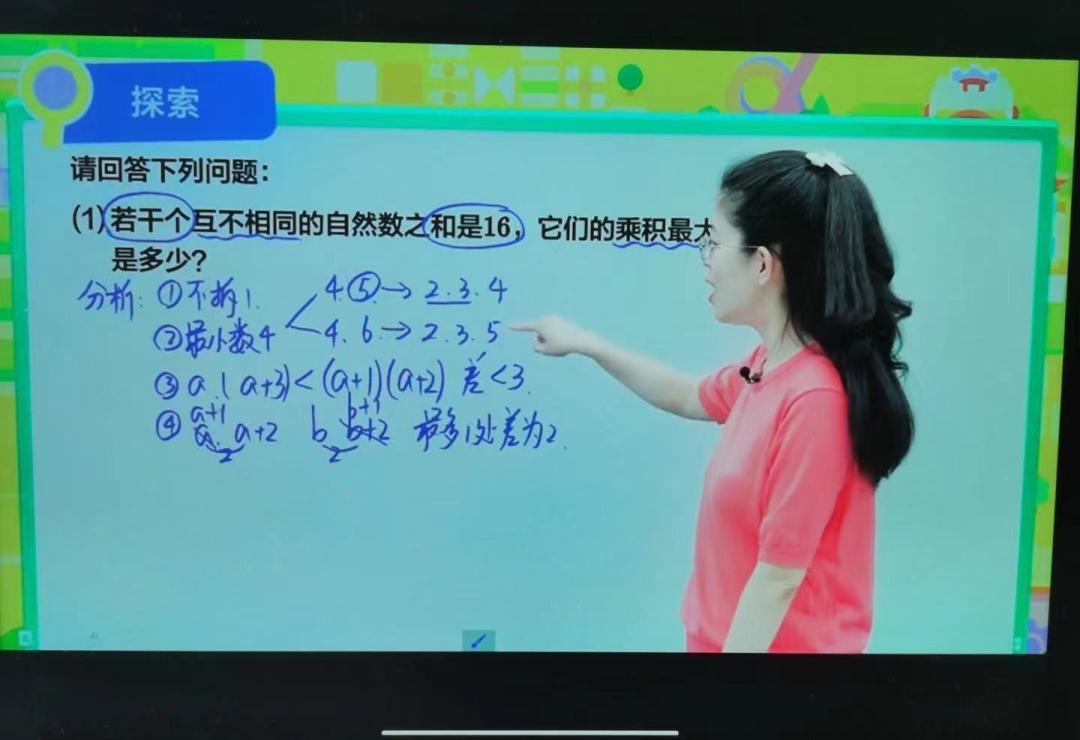 探索
请回答下列问题：
(1)若干个互不相同的自然数之和是16，它们的乘积最大
是多少？
分析：①不拆1. 4.⑤→2.3.4
②最小数4 4.6→2.3.5
③a.(a+3)<(a+1)(a+2) 差<3.
a+1 b+1
④a. a+2 b b+2 最多1处差为2.
2 2